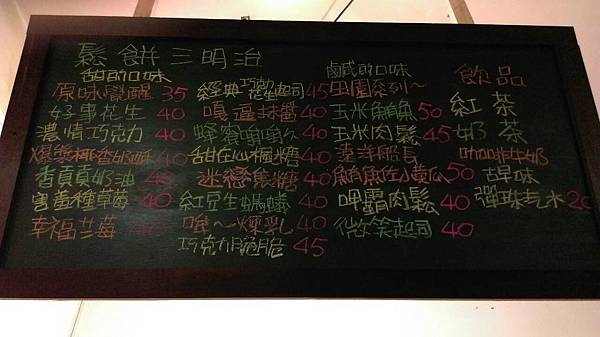 鬆餅三明治
甜的口味
原味覺醒 35
好事花生 40
濃情巧克力 40
爆漿椰香奶酥 40
香真真奶油 40
害羞種草莓 40
幸福莎莓 40
經典巧克力花生起司 45
嘎逼抹醬 40
蜂蜜啾啾ㄠ 40
甜在心楓糖 40
迷戀焦糖 40
紅豆生螞蟻 40
哦~煉乳 40
巧克力脆脆 45
鹹的口味
田園系列~
玉米鮪魚 50
玉米肉鬆 45
遠洋船長
鮪魚在小黃瓜 50
呷霸肉鬆 40
微笑起司 40
飲品
紅茶
奶茶
咖啡牛奶
古早味
彈珠汽水 20